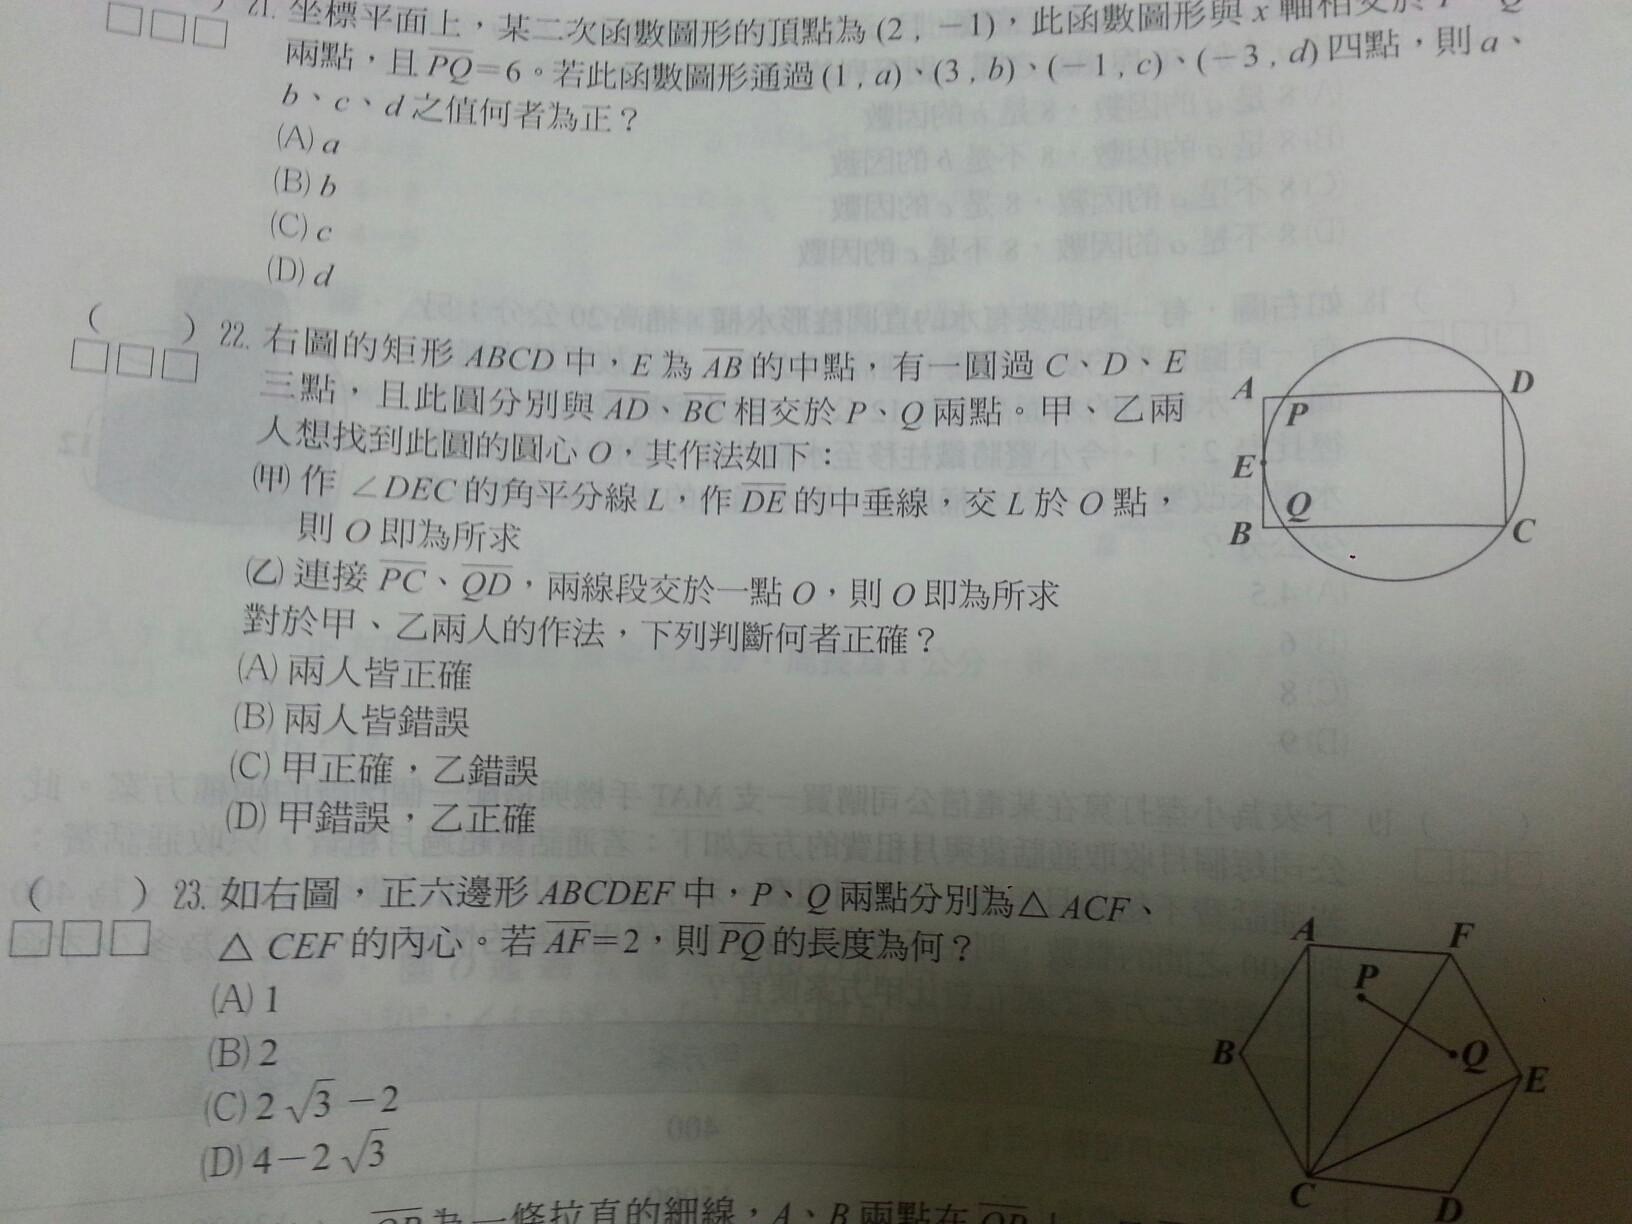 21. 坐標平面上，某二次函數圖形的頂點為 (2 , −1)，此函數圖形與 x 軸相交於 P、Q
兩點，且 PQ=6。若此函數圖形通過 (1 , a)、(3 , b)、(−1 , c)、(−3 , d) 四點，則 a、
b、c、d 之值何者為正？
(A) a
(B) b
(C) c
(D) d
( ) 22. 右圖的矩形 ABCD 中，E 為 AB 的中點，有一圓過 C、D、E
三點，且此圓分別與 AD、BC 相交於 P、Q 兩點。甲、乙兩
人想找到此圓的圓心 O，其作法如下：
(甲) 作 ∠DEC 的角平分線 L，作 DE 的中垂線，交 L 於 O 點，
則 O 即為所求
(乙) 連接 PC、QD，兩線段交於一點 O，則 O 即為所求
對於甲、乙兩人的作法，下列判斷何者正確？
(A) 兩人皆正確
(B) 兩人皆錯誤
(C) 甲正確，乙錯誤
(D) 甲錯誤，乙正確
A
D
P
E
Q
B
C
( ) 23. 如右圖，正六邊形 ABCDEF 中，P、Q 兩點分別為△ ACF、
△ CEF 的內心。若 AF=2，則 PQ 的長度為何？
(A) 1
(B) 2
(C) 2√3 −2
(D) 4−2√3
A
F
P
B
Q
E
C
D
為一條拉直的細線，A、B 兩點在